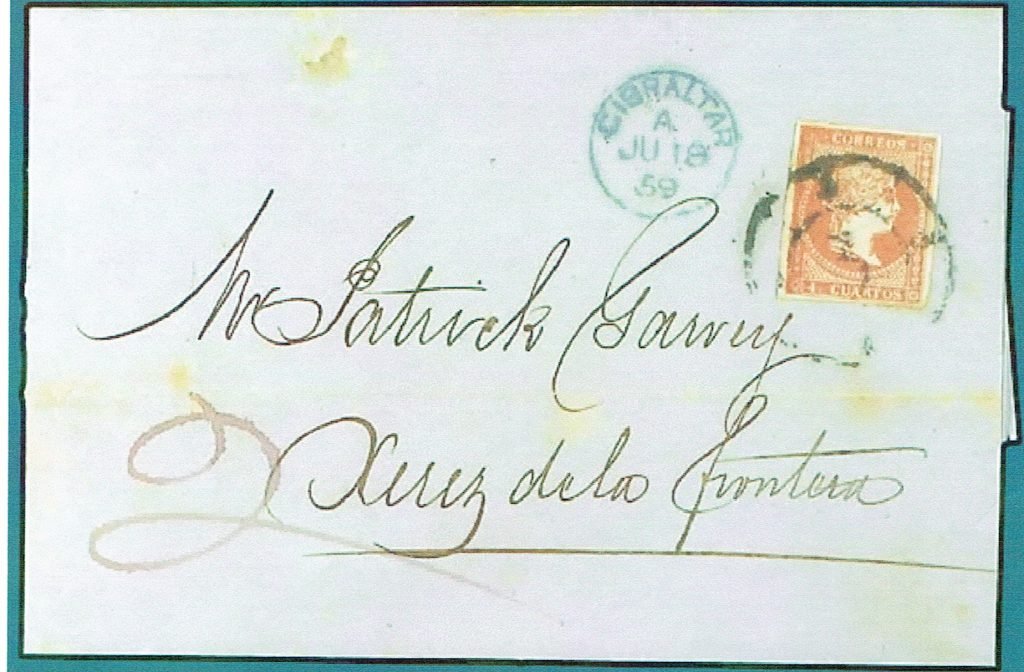 GIBRALTAR
A
JU 18
59
CORREOS
4 CUARTOS
Mr Patrick Garvey
2
Xerez de la Frontera